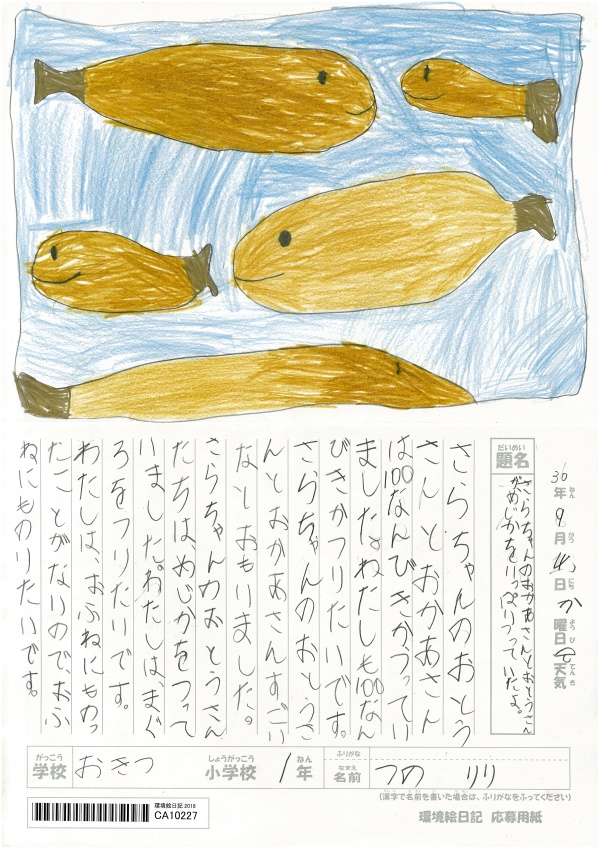 30年ねん9月がつ4日にちか曜日ようび天気てんき
だいめい
題名
さらちゃんのおかあさんとおとうさん
がめじかをいっぱいつっていたよ。
さらちゃんのおとう
さんとおかあさん
は100なんびきかつってい
ました。わたしも100なん
びきかつりたいです。
さらちゃんのおとうさ
んとおかあさんすごい
なとおもいました。
さらちゃんのおとうさん
たちは、めじかをつって
いました。わたしは、まぐ
ろをつりたいです。
わたしは、おふねにものっ
たことがないので、おふ
ねにものりたいです。
がっこう
学校 おきつ
しょうがっこう
小学校 1 
ねん
年
ふりがな
なまえ
名前 つの りり
(漢字で名前を書いた場合は、ふりがなをふってください)
環境絵日記 応募用紙
環境絵日記2018
CA10227